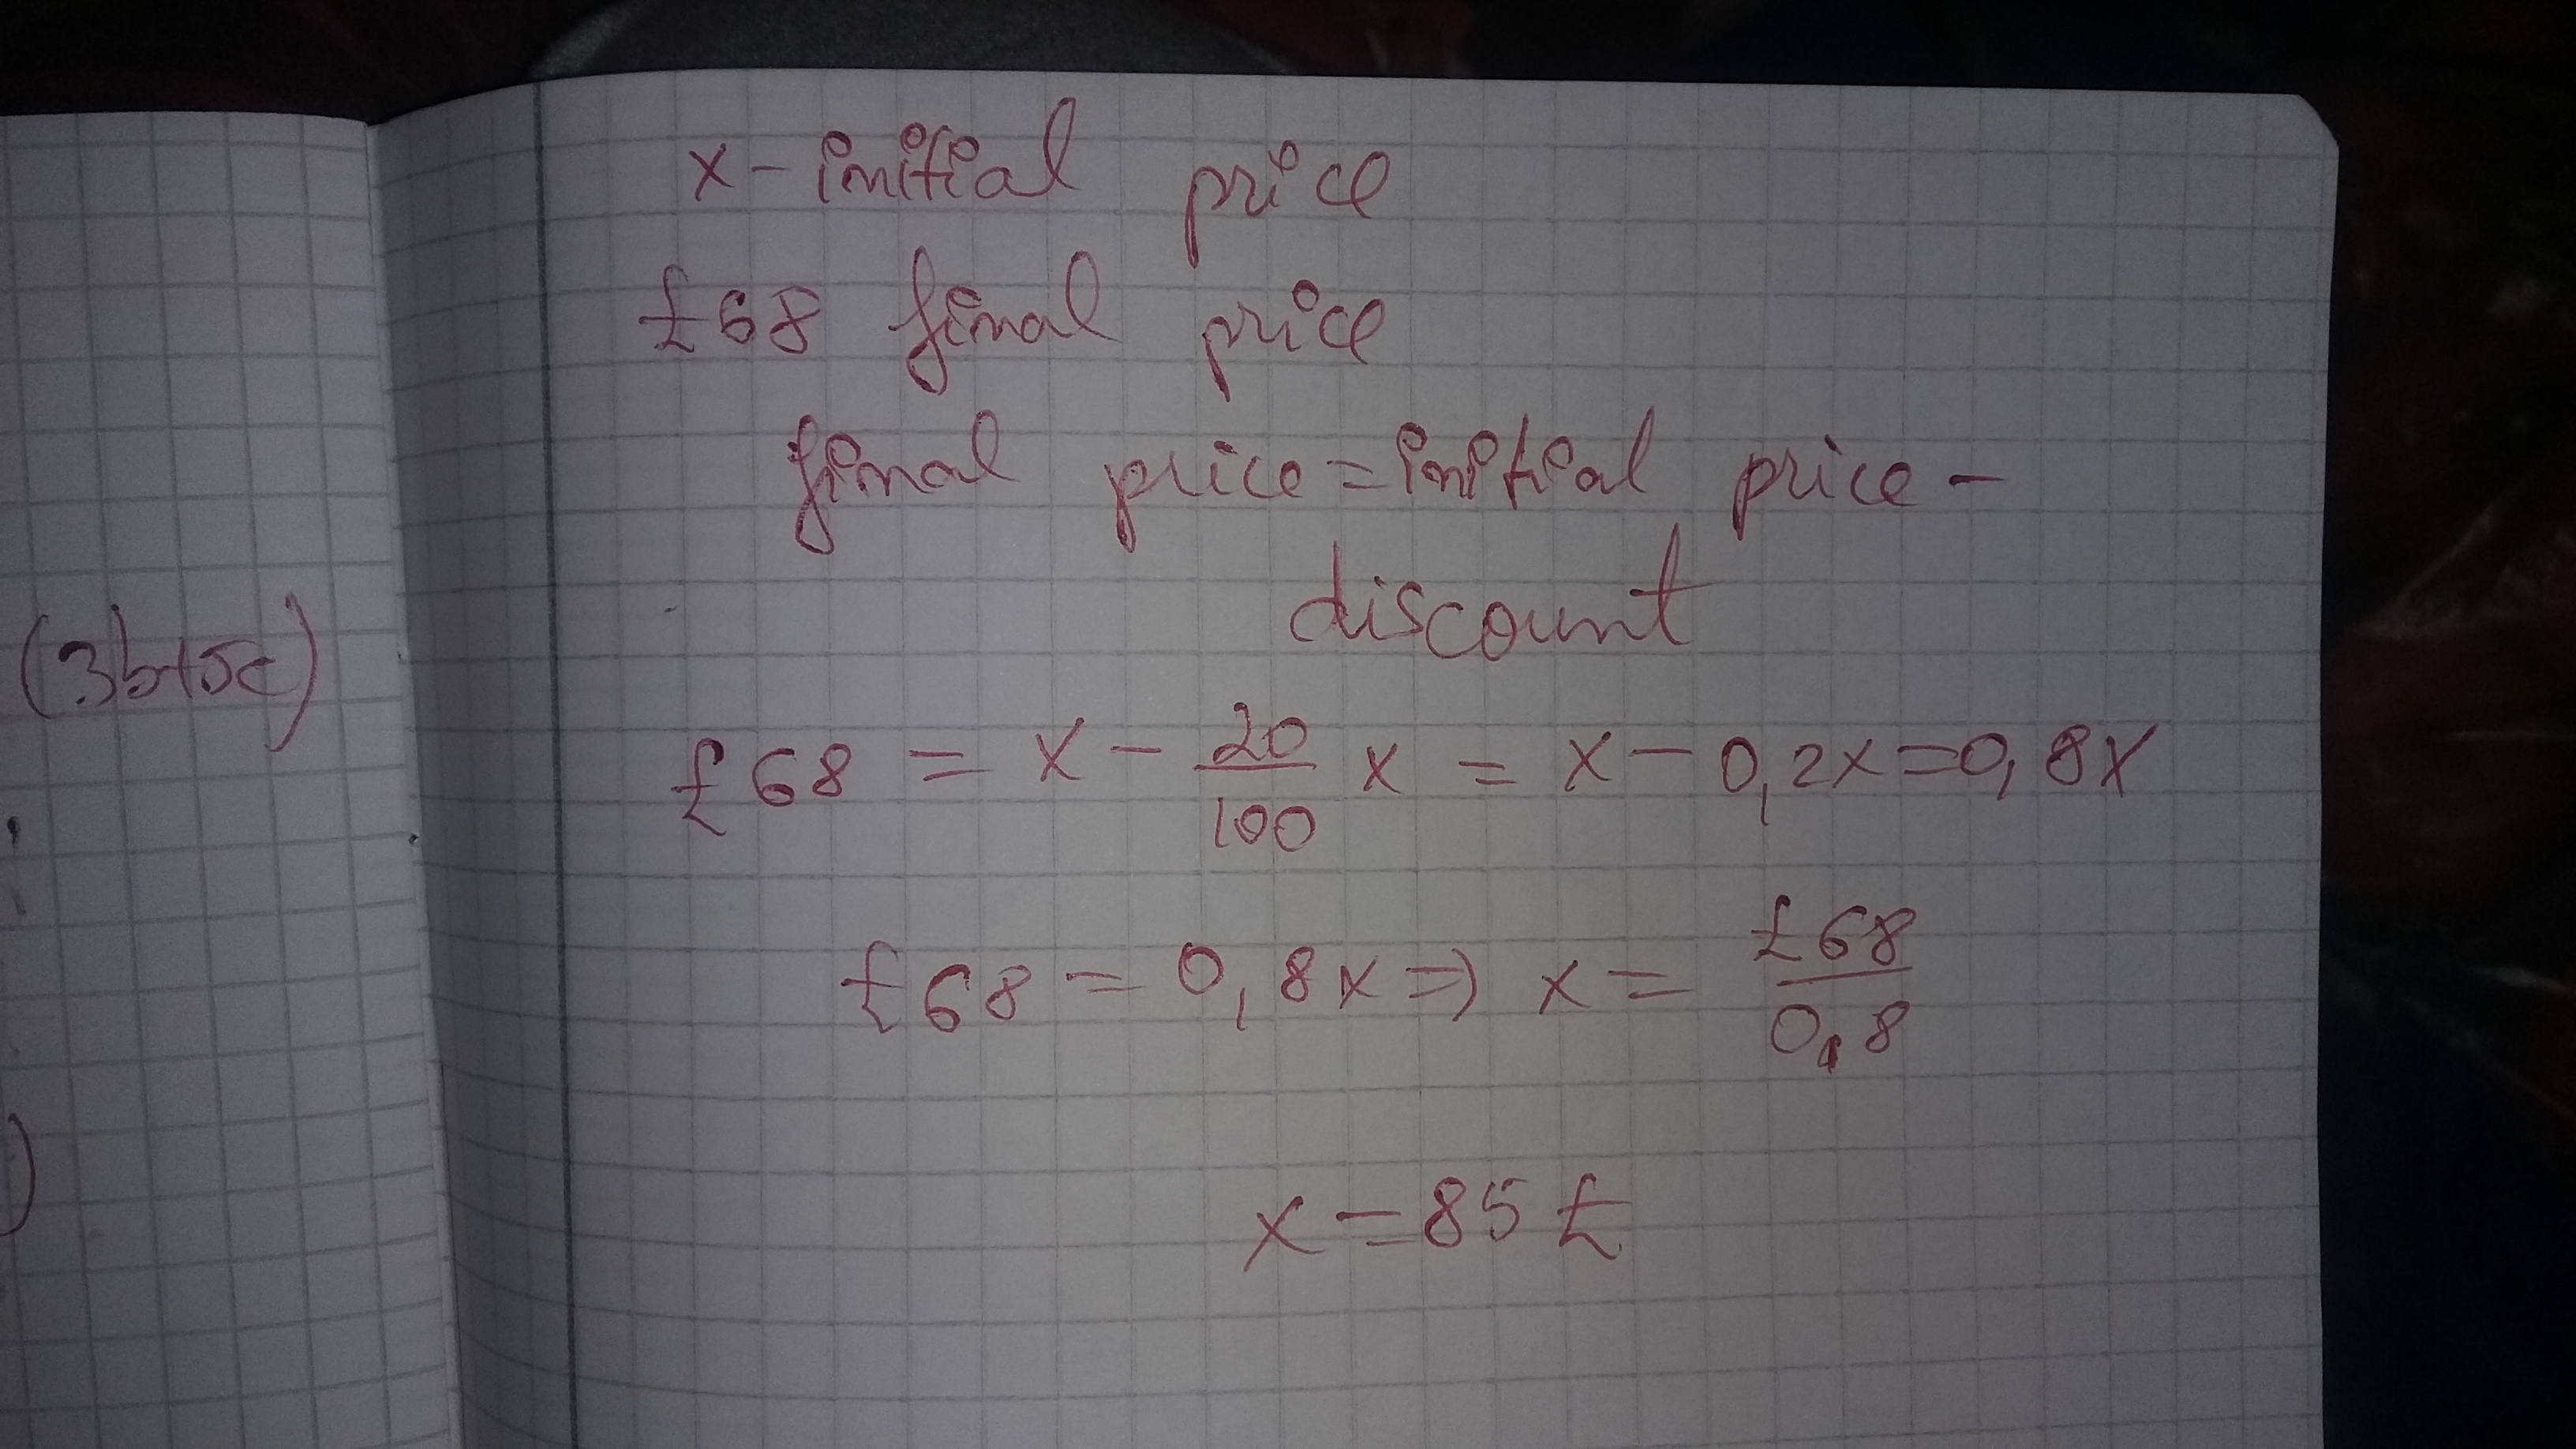 (3b+5c)
x - initial price
£68 final price
final price = initial price -
discount
£68 = x - 20/100 x = x - 0,2x = 0,8x
£68 = 0,8x => x = £68/0,8
x = 85 £